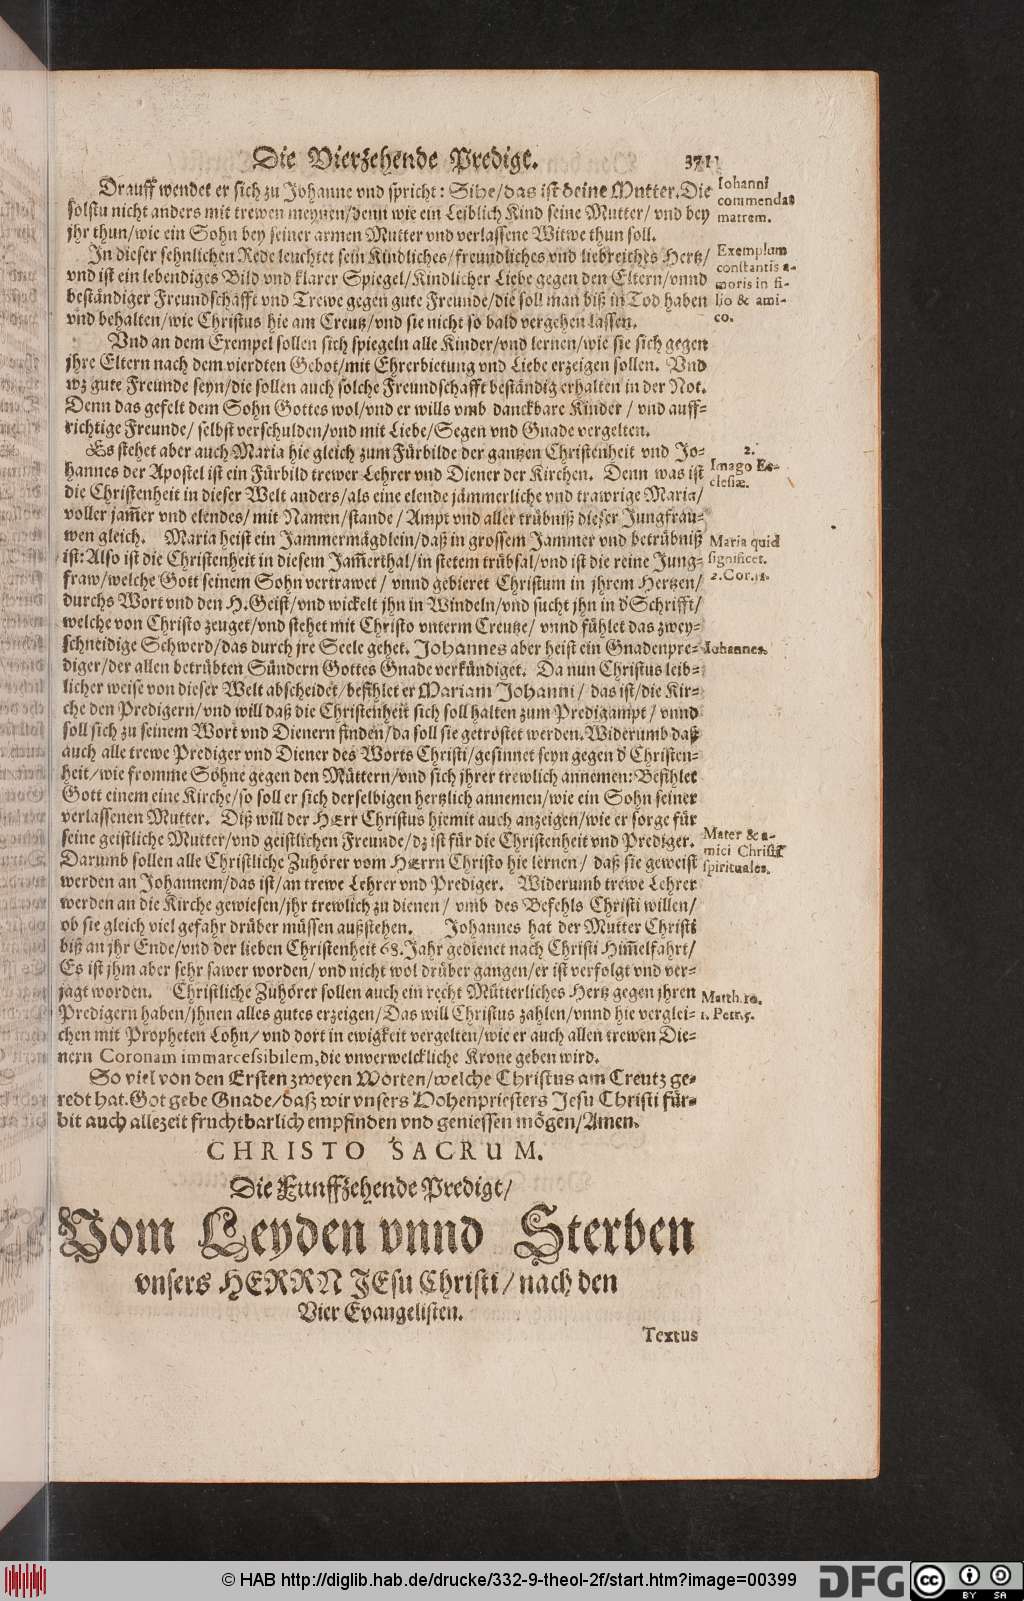 Die Vierzehende Predigt. 371
Drauff wendet er sich zu Johanne vnd spricht: Sihe/das ist deine Mutter. Die
solstu nicht anders mit trewen meynen/denn wie ein Leiblich Kind seine Mutter/ vnd bey
jhr thun/wie ein Sohn bey seiner armen Mutter vnd verlassene Witwe thun soll.
Iohanni
commendat
matrem.
In dieser sehnlichen Rede leuchtet sein Kindliches/freundliches vnd liebreiches Hertz/
vnd ist ein lebendiges Bild vnd klarer Spiegel/Kindlicher Liebe gegen den Eltern/vnnd
beständiger Freundschafft vnd Trewe gegen gute Freunde/die soll man biß in Tod haben
vnd behalten/wie Christus hie am Creutz/vnd sie nicht so bald vergehen lassen.
Exemplum
constantis a-
moris in fi-
lio & ami-
co.
Vnd an dem Exempel sollen sich spiegeln alle Kinder/vnd lernen/wie sie sich gegen
jhre Eltern nach dem vierdten Gebot/mit Ehrerbietung vnd Liebe erzeigen sollen. Vnd
wz gute Freunde seyn/die sollen auch solche Freundschafft beständig erhalten in der Not.
Denn das gefelt dem Sohn Gottes wol/vnd er wills vmb danckbare Kinder / vnd auff-
richtige Freunde/ selbst verschulden/vnd mit Liebe/Segen vnd Gnade vergelten.
Es stehet aber auch Maria hie gleich zum Fürbilde der gantzen Christenheit vnd Jo-
hannes der Apostel ist ein Fürbild trewer Lehrer vnd Diener der Kirchen. Denn was ist
die Christenheit in dieser Welt anders/als eine elende jämmerliche vnd trawrige Maria/
voller jam̃er vnd elendes/ mit Namen/stande / Ampt vnd aller trübniß dieser Jungfrau-
wen gleich. Maria heist ein Jammermägdlein/daß in grossem Jammer vnd betrübniß
ist: Also ist die Christenheit in diesem Jam̃erthal/in stetem trübsal/vnd ist die reine Jung-
fraw/welche Gott seinem Sohn vertrawet / vnnd gebieret Christum in jhrem Hertzen/
durchs Wort vnd den H. Geist/vnd wickelt jhn in Windeln/vnd sucht jhn in d' Schrifft/
welche von Christo zeuget/vnd stehet mit Christo vnterm Creutze/ vnnd fühlet das zwey-
schneidige Schwerd/das durch jre Seele gehet. Johannes aber heist ein Gnadenpre-
diger/der allen betrübten Sündern Gottes Gnade verkündiget. Da nun Christus leib-
licher weise von dieser Welt abscheidet/befihlet er Mariam Johanni / das ist/die Kir-
che den Predigern/vnd will daß die Christenheit sich soll halten zum Predigampt / vnnd
soll sich zu seinem Wort vnd Dienern finden/da soll sie getröstet werden. Widerumb daß
auch alle trewe Prediger vnd Diener des Worts Christi/gesinnet seyn gegen d' Christen-
heit/wie fromme Söhne gegen den Müttern/vnd sich jhrer trewlich annemen: Befihlet
Gott einem eine Kirche/so soll er sich derselbigen hertzlich annemen/wie ein Sohn seiner
verlassenen Mutter. Diß will der HErr Christus hiemit auch anzeigen/wie er sorge für
seine geistliche Mutter/vnd geistlichen Freunde/dz ist für die Christenheit vnd Prediger.
Darumb sollen alle Christliche Zuhörer vom HErrn Christo hie lernen / daß sie geweist
werden an Johannem/das ist/an trewe Lehrer vnd Prediger. Widerumb trewe Lehrer
werden an die Kirche gewiesen/jhr trewlich zu dienen / vmb des Befehls Christi willen/
ob sie gleich viel gefahr drüber müssen außstehen. Johannes hat der Mutter Christi
biß an jhr Ende/vnd der lieben Christenheit 68. Jahr gedienet nach Christi Him̃elfahrt/
Es ist jhm aber sehr sawer worden/ vnd nicht wol drüber gangen/er ist verfolgt vnd ver-
jagt worden. Christliche Zuhörer sollen auch ein recht Mütterliches Hertz gegen jhren
Predigern haben/jhnen alles gutes erzeigen/Das will Christus zahlen/vnnd hie verglei-
chen mit Propheten Lohn/ vnd dort in ewigkeit vergelten/wie er auch allen trewen Die-
nern Coronam immarcessibilem, die vnverwelckliche Krone geben wird.
2.
Imago Ec-
clesiæ.
Maria quid
significet.
2. Cor. 11.
Iohannes.
Mater & a-
mici Christi
spirituales.
Matth. 10.
1. Petr. 5.
So viel von den Ersten zweyen Worten/welche Christus am Creutz ge-
redt hat. Got gebe Gnade/daß wir vnsers Hohenpriesters Jesu Christi für-
bit auch allezeit fruchtbarlich empfinden vnd geniessen mögen/Amen.
CHRISTO SACRUM.
Die Funffzehende Predigt/
Vom Leyden vnnd Sterben
vnsers HERRN JEsu Christi/ nach den
Vier Evangelisten.
Textus
© HAB http://diglib.hab.de/drucke/332-9-theol-2f/start.htm?image=00399
DFG
cc BY SA